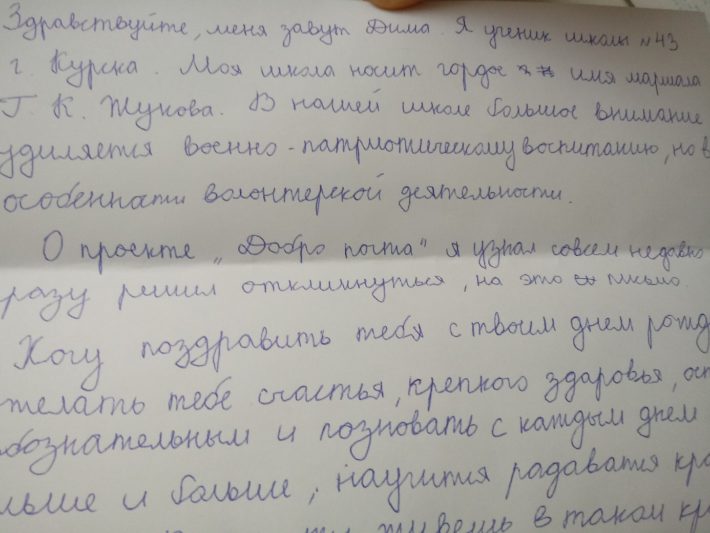 Здравствуйте, меня завут Дима. Я ученик школы №43
г. Курска. Моя школа носит гордое имя маршала
Г. К. Жукова. В нашей школе большое внимание
уделяется военно-патриотическому воспитанию, но в
особеннати волонтерской деятельности.
О проекте „Добро почта" я узнал совсем недавно
разу решил откликнуться, на это письмо.
Хочу поздравить тебя с твоим днем рожд
желать тебе счастья, крепкого здоровья, ост
бознательным и позновать с каждым днем
льше и больше, научится радаватя кра
живешь в таком кр